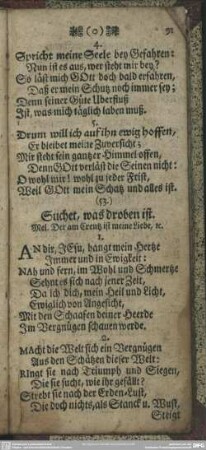 (o) 91
4.
Spricht meine Seele bey Gefahren:
Nun ist es aus, wer steht mir bey?
So läst mich GOtt doch bald erfahren,
Daß er mein Schutz noch immer sey;
Denn seiner Güte Uberfluß
Ist, was mich täglich laben muß.
5.
Drum will ich auf ihn ewig hoffen,
Er bleibet meine Zuversicht;
Mir steht sein gantzer Himmel offen,
Denn GOtt verläst die Seinen nicht:
O wohl mir! wohl zu jeder Frist,
Weil GOtt mein Schatz und alles ist.
(53.)
Suchet, was droben ist.
Mel. Der am Creutz ist meine Liebe, ꝛc.
1.
AN dir, JEsu, hangt mein Hertze
Immer und in Ewigkeit:
NAh und fern, im Wohl und Schmertze
Sehnt es sich nach jener Zeit,
Da ich dich, mein Heil und Licht,
Ewiglich von Angesicht,
Mit den Schaafen deiner Heerde
Im Vergnügen schauen werde.
2.
MAcht die Welt sich ein Vergnügen
Aus den Schätzen dieser Welt:
RIngt sie nach Triumph und Siegen,
Die sie sucht, wie ihr gefält?
Strebt sie nach der Erden-Lust,
Die doch nichts, als Stanck u. Wust,
Steigt